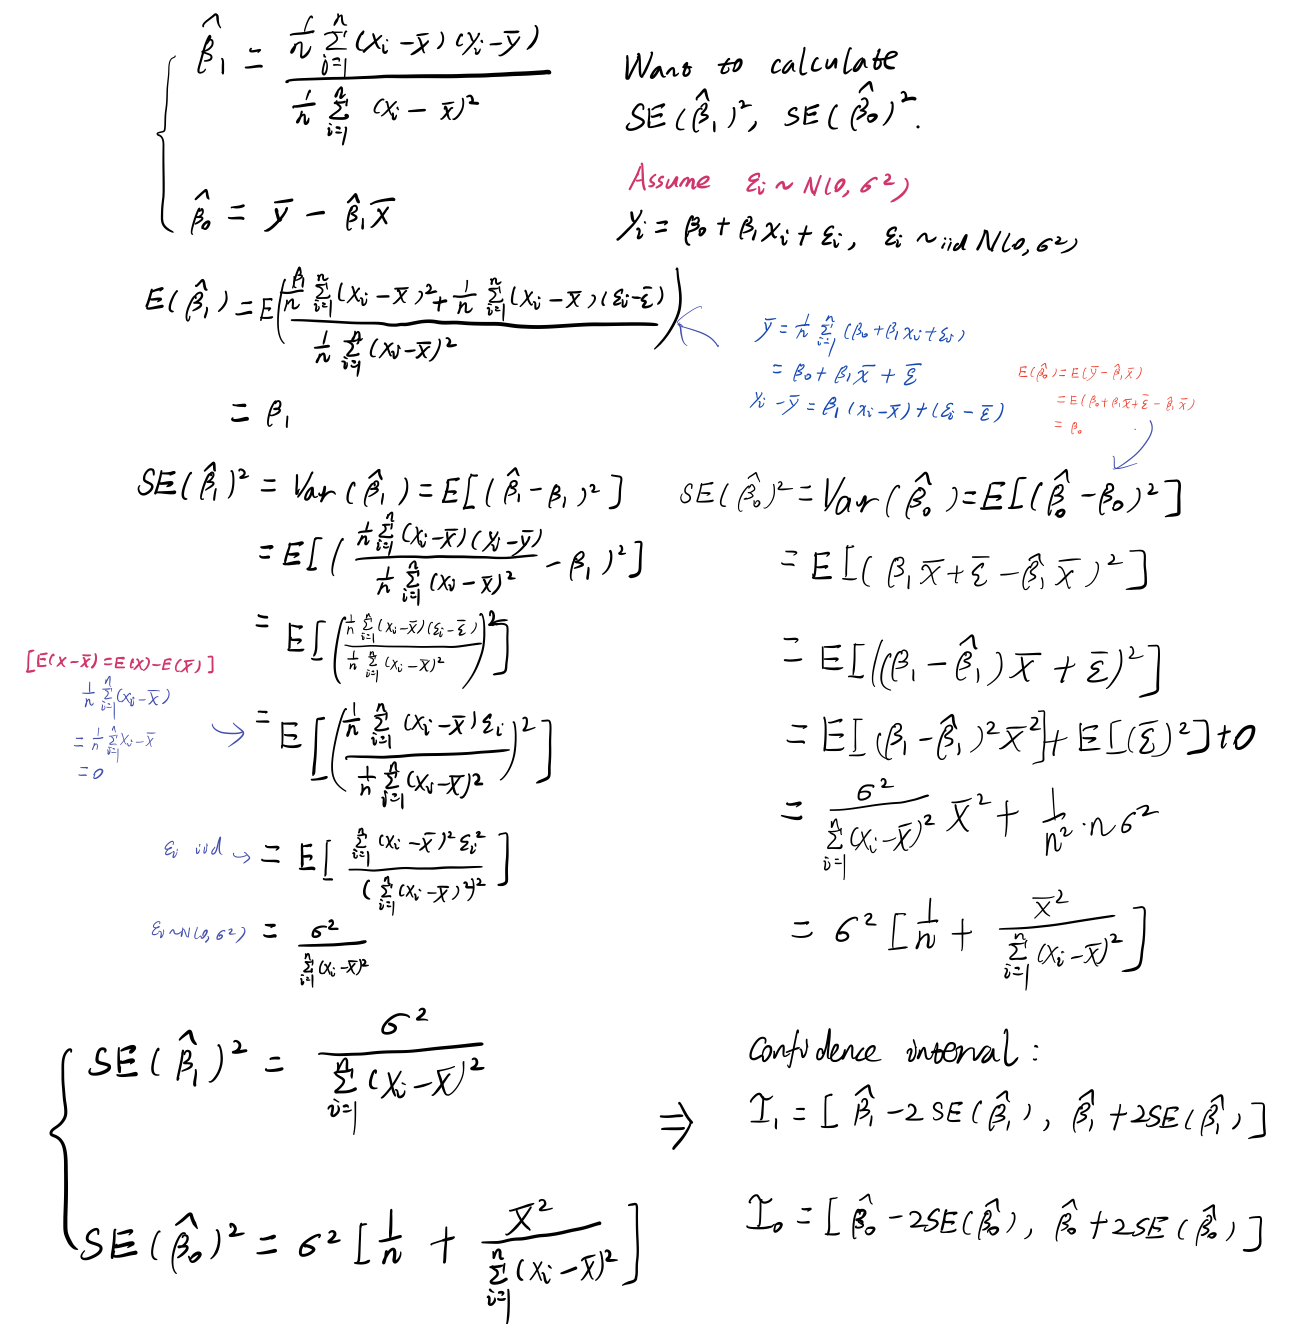 β̂₁ = (1/n ∑ᵢ₌₁ⁿ (xᵢ - x̄)(yᵢ - ȳ)) / (1/n ∑ᵢ₌₁ⁿ (xᵢ - x̄)²)
β̂₀ = ȳ - β̂₁x̄
Want to calculate
SE(β̂₁)², SE(β̂₀)².
Assume εᵢ ~ N(0, σ²)
yᵢ = β₀ + β₁xᵢ + εᵢ, εᵢ ~iid N(0, σ²)
E(β̂₁) = E((β₁/n ∑ᵢ₌₁ⁿ (xᵢ - x̄)² + 1/n ∑ᵢ₌₁ⁿ (xᵢ - x̄)(εᵢ - ε̄)) / (1/n ∑ᵢ₌₁ⁿ (xᵢ - x̄)²))
= β₁
ȳ = 1/n ∑ᵢ₌₁ⁿ (β₀ + β₁xᵢ + εᵢ)
= β₀ + β₁x̄ + ε̄
yᵢ - ȳ = β₁(xᵢ - x̄) + (εᵢ - ε̄)
E(β̂₀) = E(ȳ - β̂₁x̄)
= E(β₀ + β₁x̄ + ε̄ - β̂₁x̄)
= β₀
SE(β̂₁)² = Var(β̂₁) = E[(β̂₁ - β₁)²]
= E[((1/n ∑ᵢ₌₁ⁿ (xᵢ - x̄)(yᵢ - ȳ)) / (1/n ∑ᵢ₌₁ⁿ (xᵢ - x̄)²) - β₁)²]
= E[((1/n ∑ᵢ₌₁ⁿ (xᵢ - x̄)(εᵢ - ε̄)) / (1/n ∑ᵢ₌₁ⁿ (xᵢ - x̄)²))²]
[E(x - x̄) = E(x) - E(x̄)]
1/n ∑ᵢ₌₁ⁿ (xᵢ - x̄)
= 1/n ∑ᵢ₌₁ⁿ xᵢ - x̄
= 0
→ = E[((1/n ∑ᵢ₌₁ⁿ (xᵢ - x̄)εᵢ) / (1/n ∑ᵢ₌₁ⁿ (xᵢ - x̄)²))²]
εᵢ iid → = E[(∑ᵢ₌₁ⁿ (xᵢ - x̄)² εᵢ²) / (∑ᵢ₌₁ⁿ (xᵢ - x̄)²)²]
εᵢ ~ N(0, σ²) = σ² / ∑ᵢ₌₁ⁿ (xᵢ - x̄)²
SE(β̂₀)² = Var(β̂₀) = E[(β̂₀ - β₀)²]
= E[(β₁x̄ + ε̄ - β̂₁x̄)²]
= E[((β₁ - β̂₁)x̄ + ε̄)²]
= E[(β₁ - β̂₁)²x̄²] + E[(ε̄)²] + 0
= σ² / ∑ᵢ₌₁ⁿ (xᵢ - x̄)² x̄² + 1/n² · nσ²
= σ²[1/n + x̄² / ∑ᵢ₌₁ⁿ (xᵢ - x̄)²]
SE(β̂₁)² = σ² / ∑ᵢ₌₁ⁿ (xᵢ - x̄)²
SE(β̂₀)² = σ²[1/n + x̄² / ∑ᵢ₌₁ⁿ (xᵢ - x̄)²]
⇒
Confidence interval:
I₁ = [β̂₁ - 2SE(β̂₁), β̂₁ + 2SE(β̂₁)]
I₀ = [β̂₀ - 2SE(β̂₀), β̂₀ + 2SE(β̂₀)]